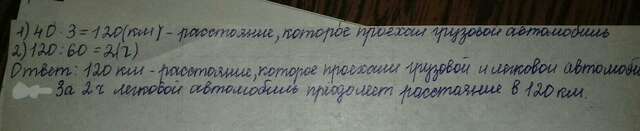 1) 40 · 3 = 120 (км) - расстояние, которое проехал грузовой автомобиль
2) 120 : 60 = 2 (ч)
Ответ: 120 км - расстояние, которое проехали грузовой и легковой автомоби
За 2 ч легковой автомобиль преодолеет расстояние в 120 км.